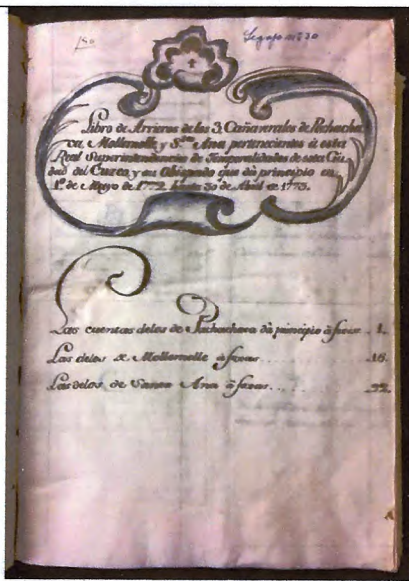 Legajo nº 30
Libro de Arrieros de los 3, Cañaverales de Pachacha
ca, Mollemolle, y Sta. Ana pertenecientes à esta
Real Superintendencia de Temporalidades de esta Ciu
dad del Cuzco, y su Obispado que dà principio en
1º de Mayo de 1772. hasta 30 de Abril de 1773.
Las cuentas delos de Pachachaca dà principio à foxas . 1.
Las delos de Mollemolle à foxas . . . . . 16.
Las delos de Santa Ana à foxas . . . . . 22.